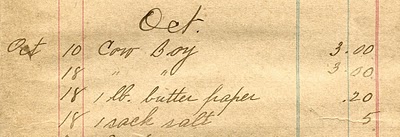 Oct.
Oct 10 Cow Boy 3.00
18 " " 3.00
18 1 lb. butter paper .20
18 1 sack salt 5